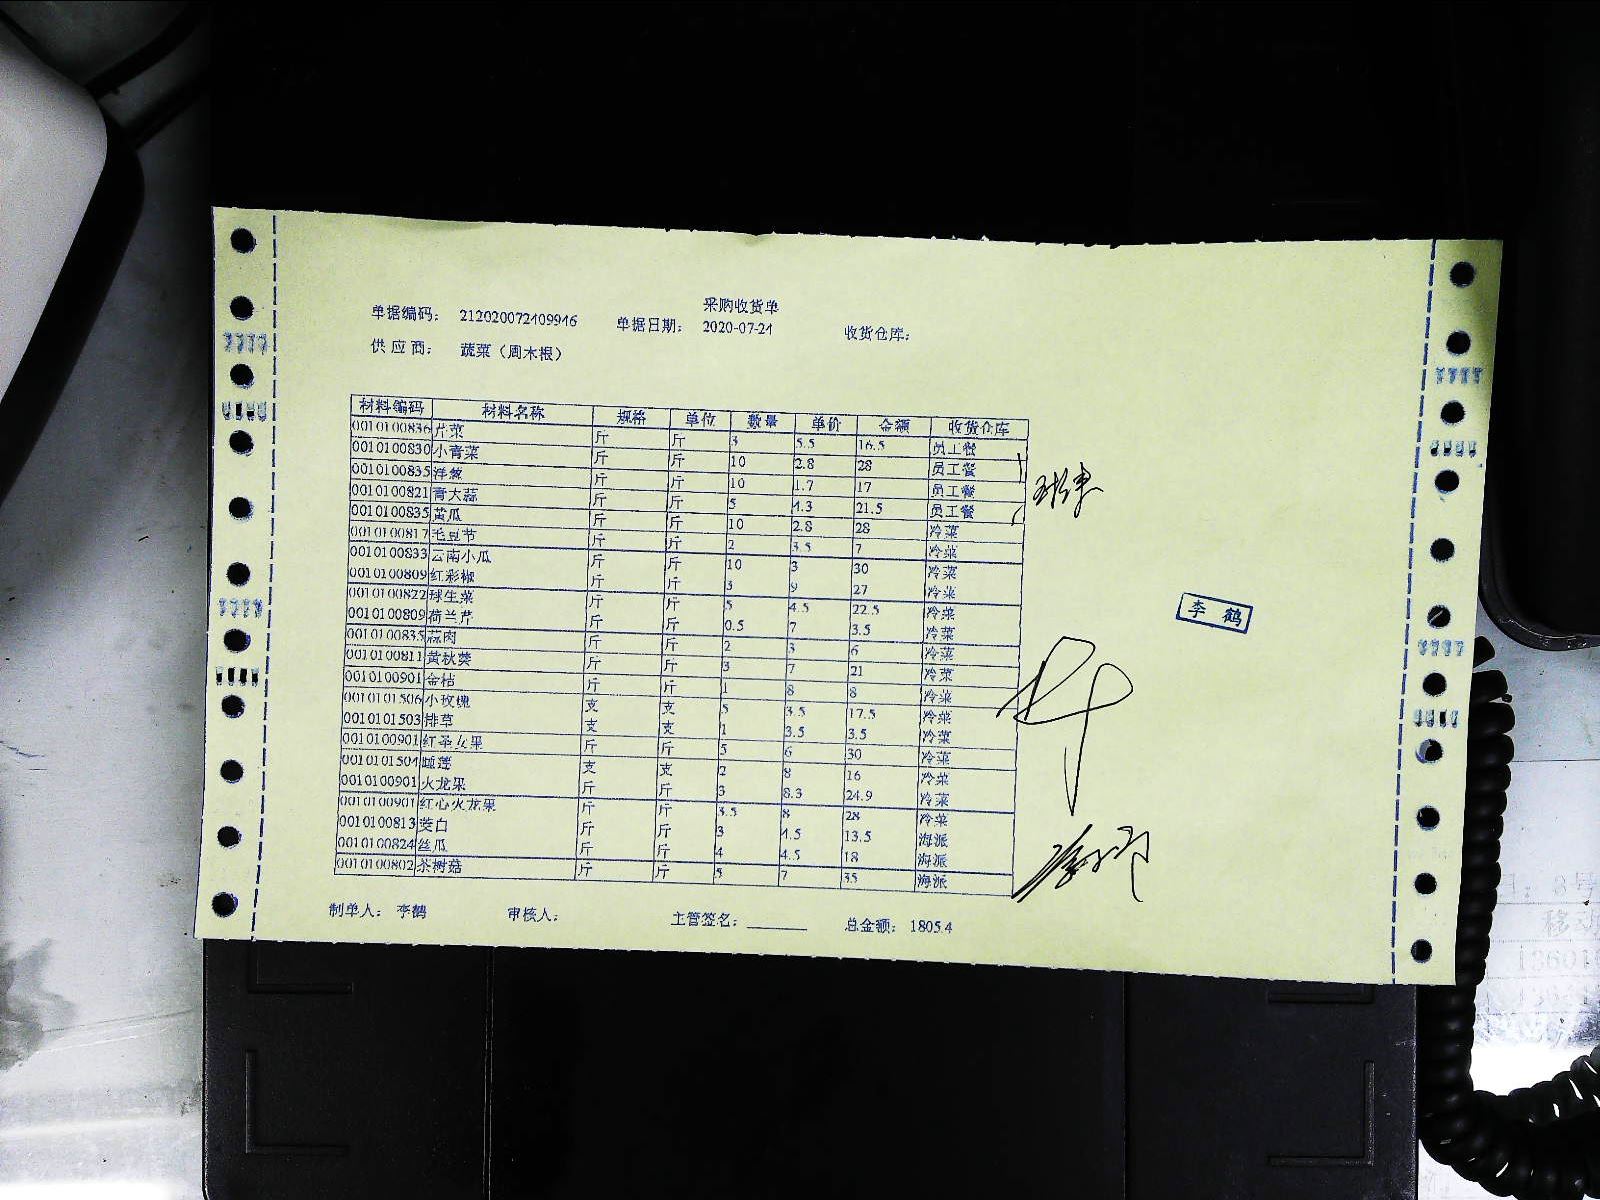 采购收货单
单据编码： 212020072409946 单据日期： 2020-07-24 收货仓库：
供应商： 蔬菜（周木根）
材料编码 材料名称 规格 单位 数量 单价 金额 收货仓库
0010100836 芹菜 斤 斤 3 5.5 16.5 员工餐
0010100830 小青菜 斤 斤 10 2.8 28 员工餐
0010100835 洋葱 斤 斤 10 1.7 17 员工餐
0010100821 青大蒜 斤 斤 5 4.3 21.5 员工餐
0010100835 黄瓜 斤 斤 10 2.8 28 冷菜
0010100817 毛豆节 斤 斤 2 3.5 7 冷菜
0010100833 云南小瓜 斤 斤 10 3 30 冷菜
0010100809 红彩椒 斤 斤 3 9 27 冷菜
0010100822 球生菜 斤 斤 5 4.5 22.5 冷菜
0010100809 荷兰芹 斤 斤 0.5 7 3.5 冷菜
0010100835 蒜肉 斤 斤 2 3 6 冷菜
0010100811 黄秋葵 斤 斤 3 7 21 冷菜
0010100901 金桔 斤 斤 1 8 8 冷菜
0010101506 小玫瑰 支 支 5 3.5 17.5 冷菜
0010101503 排草 支 支 1 3.5 3.5 冷菜
0010100901 红圣女果 斤 斤 5 6 30 冷菜
0010101504 睡莲 支 支 2 8 16 冷菜
0010100901 火龙果 斤 斤 3 8.3 24.9 冷菜
0010100901 红心火龙果 斤 斤 3.5 8 28 冷菜
0010100813 茭白 斤 斤 3 4.5 13.5 海派
0010100824 丝瓜 斤 斤 4 4.5 18 海派
0010100802 茶树菇 斤 斤 5 7 35 海派
李鹤
制单人： 李鹤 审核人： 主管签名：________ 总金额： 1805.4
8号
移动